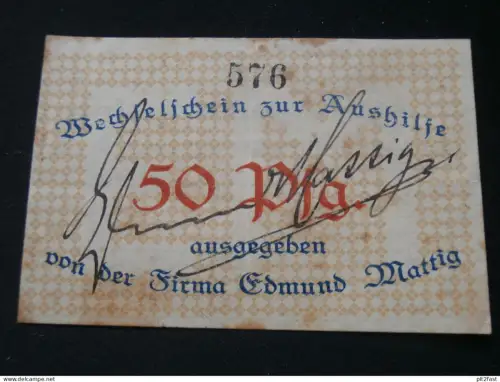 576
Wechselschein zur Aushilfe
50 Pfg.
ausgegeben
von der Firma Edmund Mattig
Edmund Mattig
delcampe.net
plt2fast